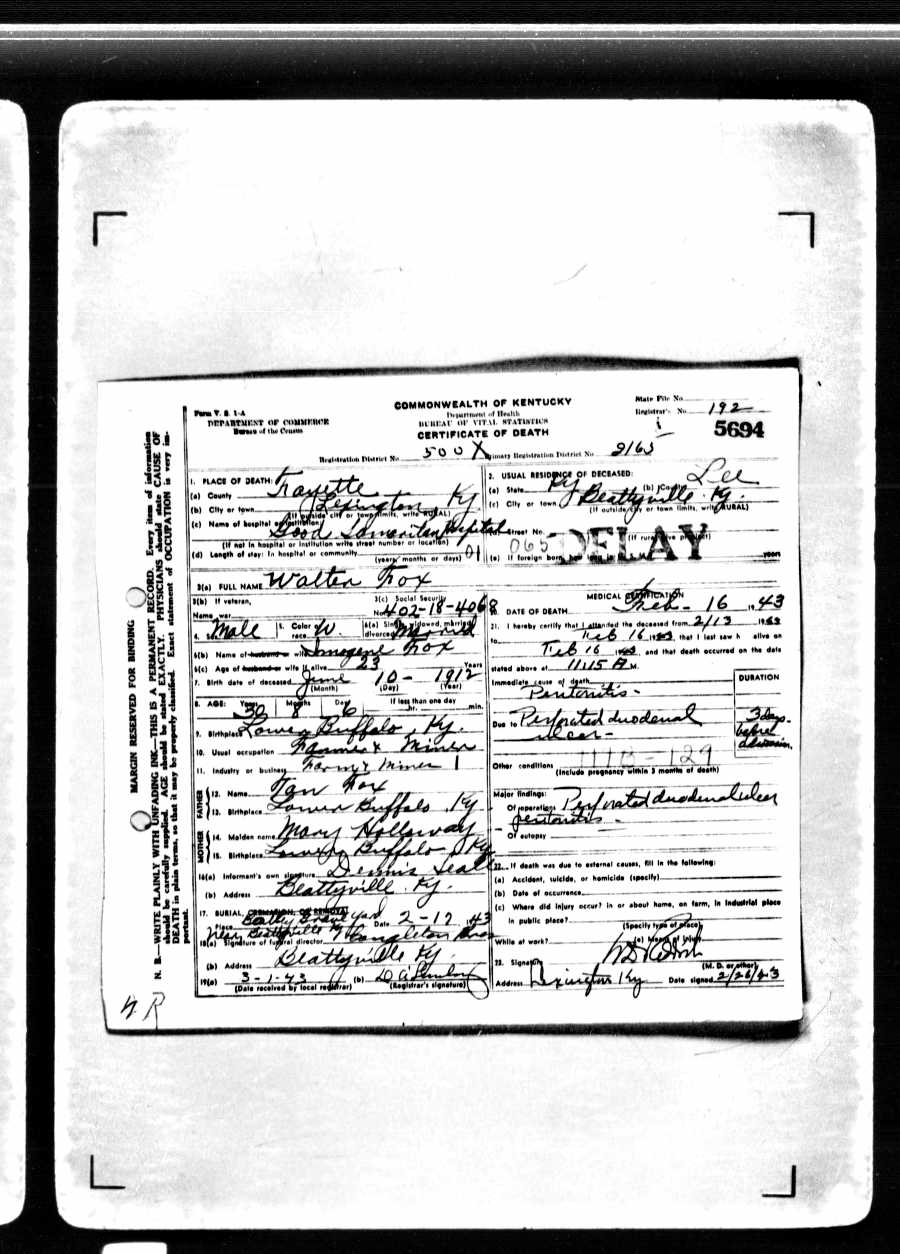 MARGIN RESERVED FOR BINDING
N. B.—WRITE PLAINLY WITH UNFADING INK—THIS IS A PERMANENT RECORD. Every item of information
should be carefully supplied. AGE should be stated EXACTLY. PHYSICIANS should state CAUSE OF
DEATH in plain terms, so that it may be properly classified. Exact statement of OCCUPATION is very im-
portant.
Form V. S. 1-A
DEPARTMENT OF COMMERCE
Bureau of the Census
COMMONWEALTH OF KENTUCKY
Department of Health
BUREAU OF VITAL STATISTICS
CERTIFICATE OF DEATH
State File No.
Registrar's No. 192
5694
Registration District No. 500X Primary Registration District No. 2165
1. PLACE OF DEATH:
(a) County Fayette
(b) City or town Lexington Ky
(If outside city or town limits, write RURAL)
(c) Name of hospital or institution:
Good Samaritan Hospital
(If not in hospital or institution write street number or location)
(d) Length of stay: In hospital or community
(years, months or days)
2. USUAL RESIDENCE OF DECEASED:
(a) State Ky (b) County Lee
(c) City or town Beattyville Ky.
(If outside city or town limits, write RURAL)
Street No.
(If rural give precinct)
065 DELAY
(e) If foreign born years
3(a) FULL NAME Walter Fox
3(b) If veteran,
Name war
3(c) Social Security
No. 402-18-4068
4. Sex Male 5. Color or race W. 6(a) Single, widowed, married, divorced Married
6(b) Name of husband or wife Imogene Fox
6(c) Age of husband or wife if alive 23 Years
7. Birth date of deceased June 10- 1912
(Month) (Day) (Year)
8. AGE: Years Months Days If less than one day
30 8 6 hr. min.
9. Birthplace Lower Buffalo, Ky.
10. Usual occupation Farmer & Miner
11. Industry or business Farm & Miner
FATHER
12. Name Tan Fox
13. Birthplace Lower Buffalo Ky
MOTHER
14. Maiden name Mary Holloway
15. Birthplace Lower Buffalo Ky
16(a) Informant's own signature Dennis
(b) Address Beattyville Ky.
17. BURIAL, CREMATION, OR REMOVAL
Place Graveyard Date 2-17 1943
near Beattyville Ky
18(a) Signature of funeral director Congleton Bros
(b) Address Beattyville Ky.
19(a) 3-1-43 (b)
(Date received by local registrar) (Registrar's signature)
MEDICAL CERTIFICATION
20. DATE OF DEATH Feb- 16 1943
21. I hereby certify that I attended the deceased from 2/13 1943
to Feb 16 1943, that I last saw h alive on
Feb 16 1943, and that death occurred on the date
stated above at 11:15 A M.
Immediate cause of death
Peritonitis-
DURATION
Due to Perforated duodenal
ulcer-
3 days
before
admission
Other conditions 111B-129
(Include pregnancy within 3 months of death)
Major findings:
Of operations Perforated duodenal ulcer
peritonitis-
Of autopsy
22. If death was due to external causes, fill in the following:
(a) Accident, suicide, or homicide (specify)
(b) Date of occurrence
(c) Where did injury occur? in or about home, on farm, in industrial place
in public place?
(Specify type of place)
While at work? (e) Means of injury
23. Signature
(M. D. or other)
Address Lexington Ky Date signed 2/26/43